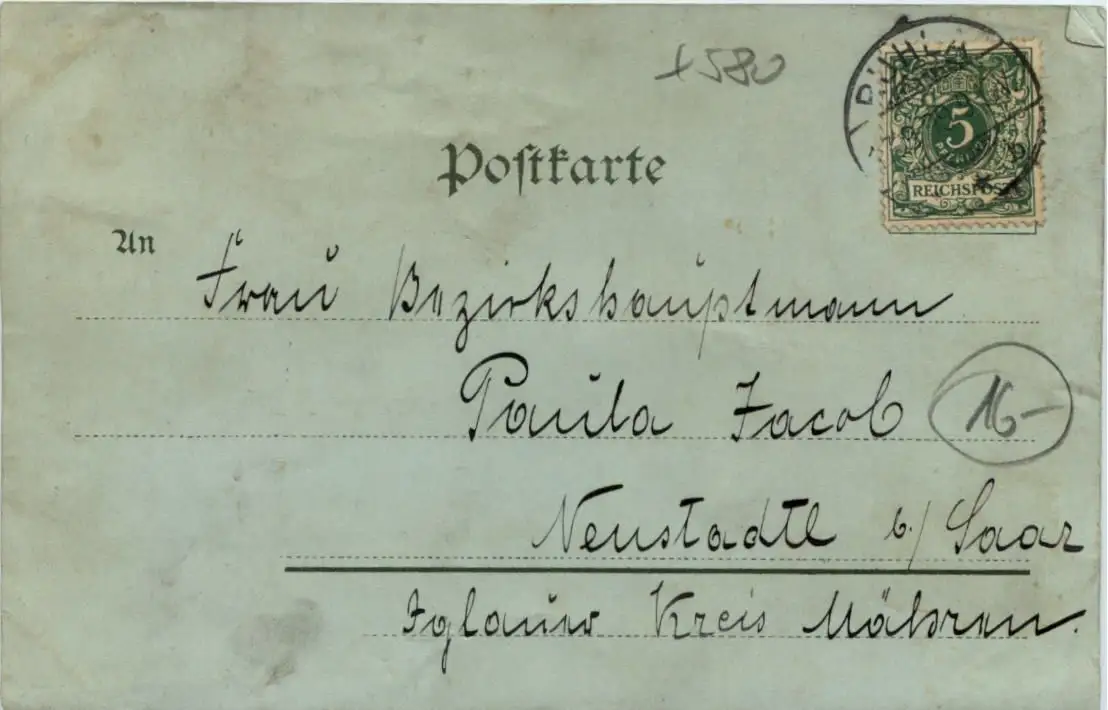 +580
RUHLA
5
PFENNIG
REICHSPOST
Postkarte
An
Frau Bezirkshauptmann
Paula Jacob
16-
Neustadtl b./ Saar
Iglauer Kreis Mähren.